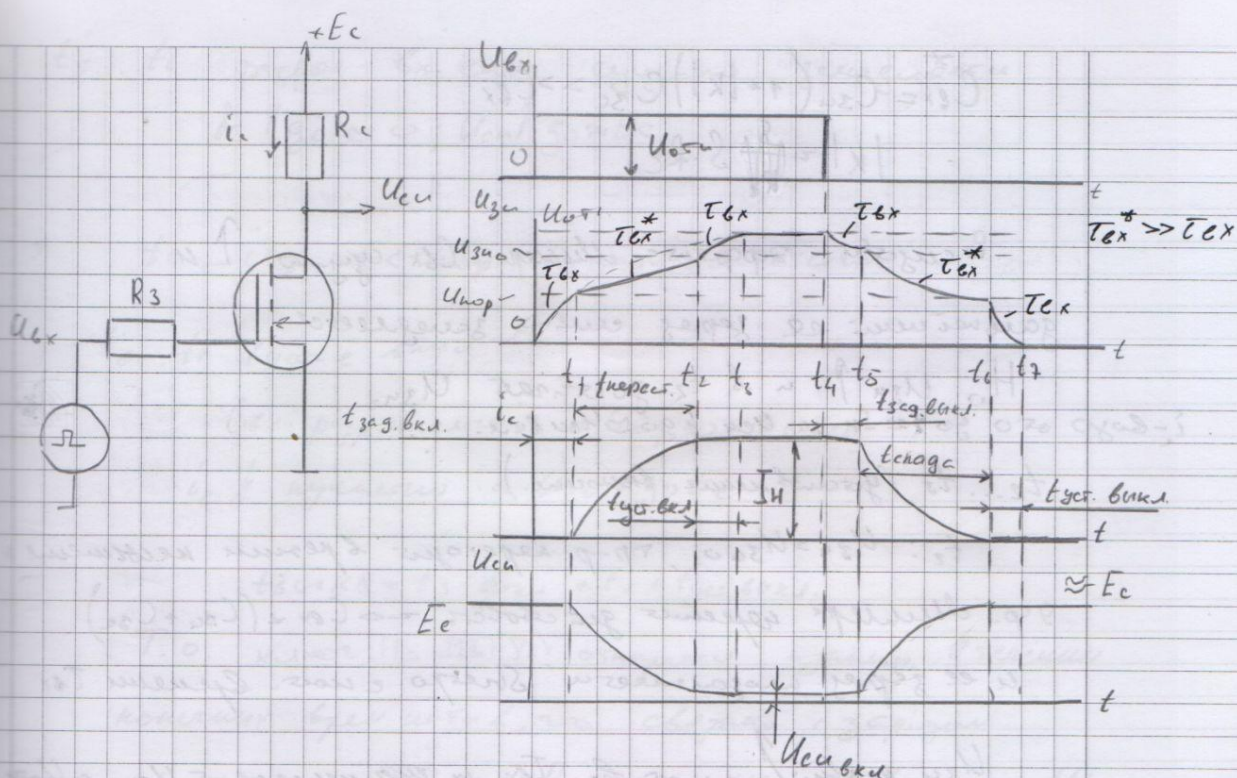 +Ec
ic
Rc
Uси
Rз
Uвх
Uвх
0
Uотп
t
Uзи
Uот
Uзио
Uпор
0
τвх
τвх*
τвх
τвх
τвх*
τвх
τвх* >> τвх
t
t1
t нараст.
t2
t3
t4
t5
t6
t7
t зад.вкл.
ic
tзад.выкл.
tспада
tуст.вкл
Iн
tуст. выкл.
t
Uси
Ec
≈ Ec
t
Uси вкл